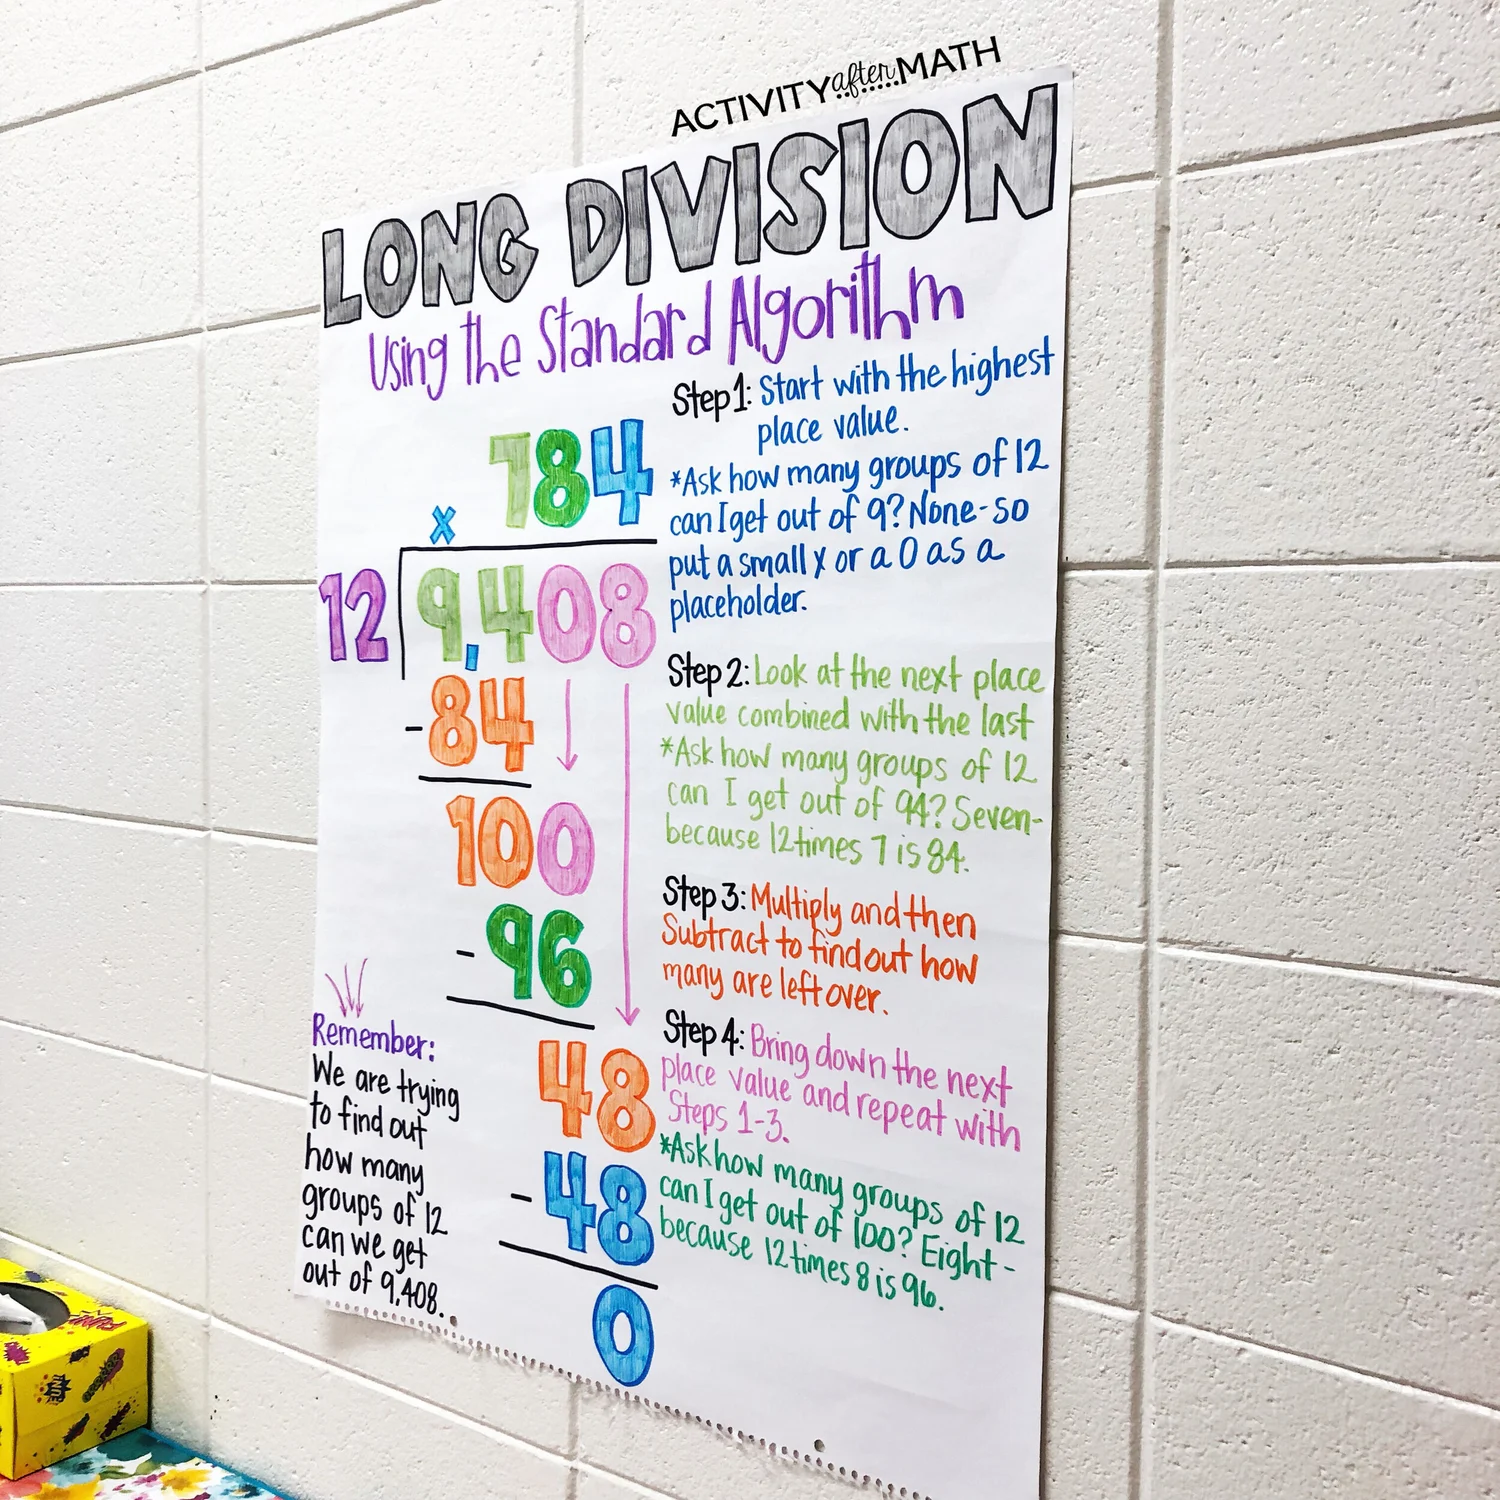 ACTIVITY after MATH
LONG DIVISION
Using the Standard Algorithm
784
x
12 9,408
-84
100
-96
48
-48
0
Remember:
We are trying
to find out
how many
groups of 12
can we get
out of 9,408.
Step 1: Start with the highest
place value.
*Ask how many groups of 12
can I get out of 9? None - so
put a small x or a 0 as a
placeholder.
Step 2: Look at the next place
value combined with the last
*Ask how many groups of 12
can I get out of 94? Seven-
because 12 times 7 is 84.
Step 3: Multiply and then
Subtract to find out how
many are left over.
Step 4: Bring down the next
place value and repeat with
Steps 1-3.
*Ask how many groups of 12
can I get out of 100? Eight -
because 12 times 8 is 96.